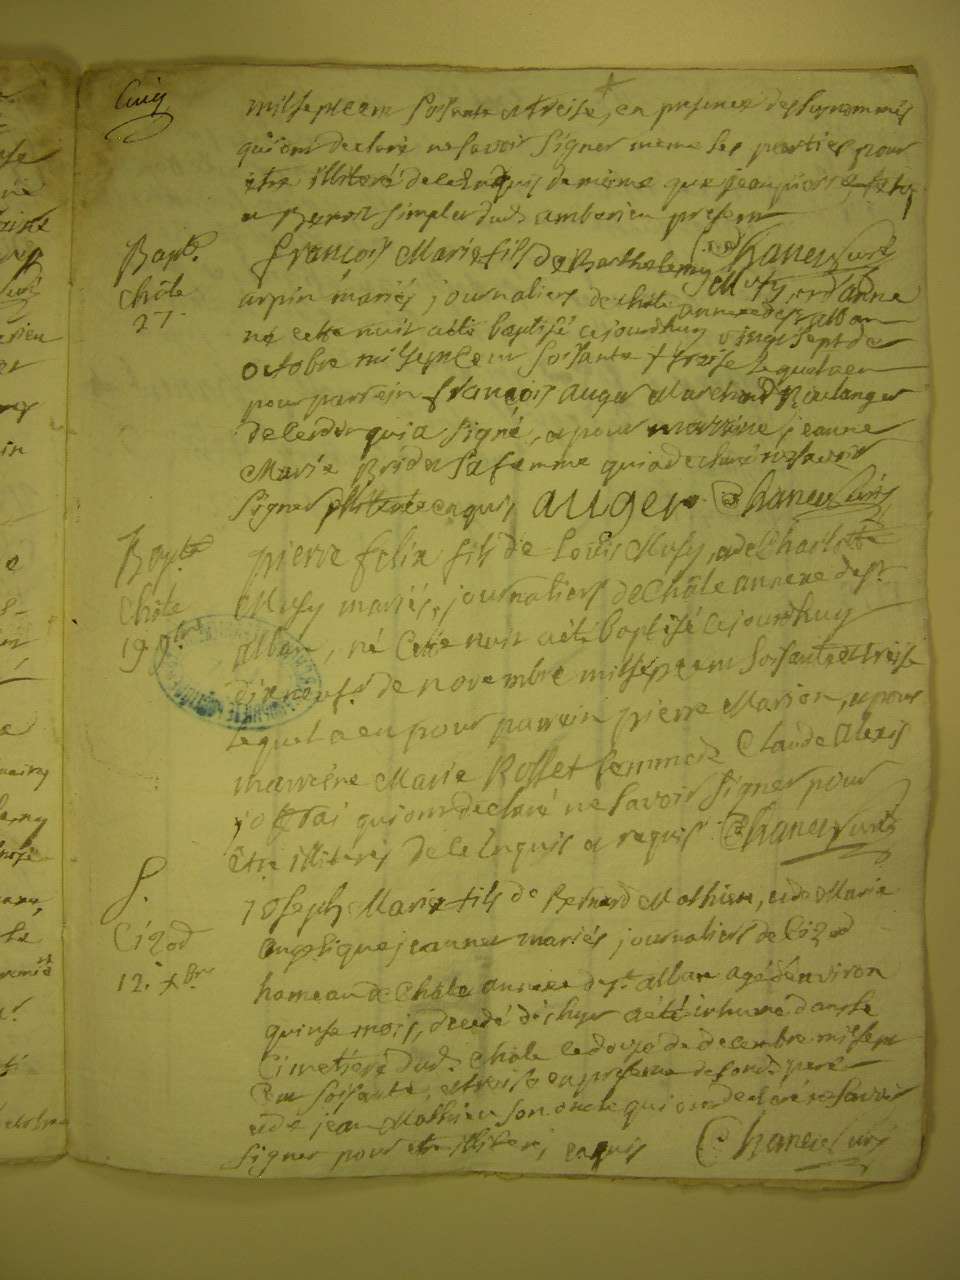 Cinq
mil sept cent soisante et treise, en presence des susnommés
qui ont declaré ne savoir signer meme les parties pour
être illiteré de ce enquis de même que jean pierre
et Benoit simples dud ambarieu presens
Chanel Curé
Bapt.
Châle
27
françois Marie fils de Barthelemy Musy, et d'anne
arpin mariés journaliers de Châle annexe de st alban
né cette nuit a été baptisé ce jourdhuy vingt sept de
octobre mil sept cent soisante et treise lequel a eu
pour parrein françois auger Marchand Boulanger
de Cerdon qui a signé, et pour marreine jeanne
Marie Brider sa femme qui a declaré ne savoir
signer illiterée enquis auger Chanel Curé
Bapt.
Châle
19 9bre
pierre felix fils de Louis Musy, et de Charlotte
Musy mariés, journaliers de Châle annexe de st
alban, né cette nuit a été baptisé ce jourdhuy
dix neuf de novembre mil sept cent soisante et treise
lequel a eu pour parrein pierre Marion, et pour
marreine Marie Rosset femme de Claude Alexis
qui ont declaré ne savoir signer pour
être illiterés de ce enquis et requis Chanel Curé
S.
Cizod
12. xbre
joseph Marie fils de Bernard Mathieu, et de Marie
angelique jeannet mariés journaliers de Cizod
hameau de Châle annexe de st alban agé d'environ
quinse mois, decedé dès hyer a été inhumé dans le
Cimetière dud. Châle le douze de decembre mil sept
cent soisante et treise en presence de son d. pere
et de jean Mathieu son oncle qui ont declaré ne savoir
signer pour etre illiteré, enquis Chanel Curé